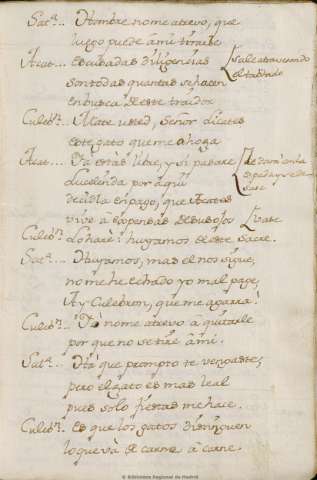 Sat.º... Hombre no me atrevo, que
luego puede á mi tirarse
Acat... Escusadas diligencias
son todas quantas se hacen
en busca de este traidor
Sale atravesando
el tablado
Culeb.n... Mate usted, Señor Acates
este gato que me ahoga
Acat... Ya estás libre, y si pasare
Lucelinda por aqui
decidla en pago, que Acates
vive á expensas de
Vase
Culeb.n Lo haré: huyamos de este Sacre.
Sat.º... Huyamos, mas el nos sigue,
no me he echado yo mal page,
Ay Culebron, que me agarra!
Culeb.n... Yo no me atrevo á quitarle
por que no se tire á mi.
Sat.º... Ha que prompto te vengaste,
pero el gato es mas leal
pues solo fiestas me hace.
Culeb.n... Es que los gatos distinguen
lo que vá de carne á carne.
© Biblioteca Regional de Madrid